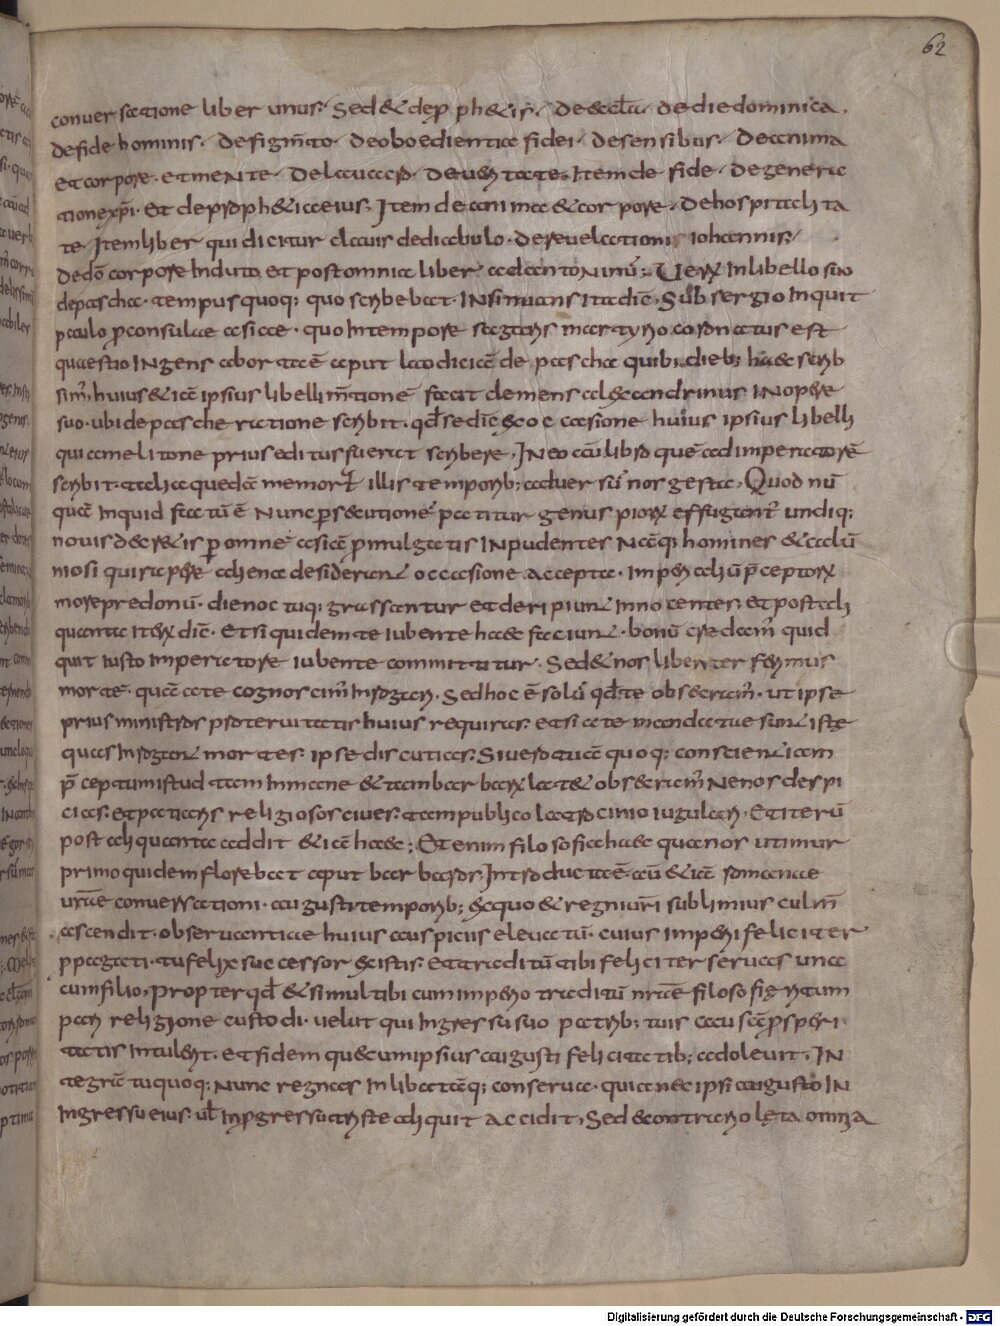 62
conuersatione liber unus. Sed & de ꝓph&is. De eccła. De die dominica.
De fide hominis. De figm̄to. De oboedientia fidei. De sensibus. De anima
et corpore. et mente. De lauacro. De ueritate. Item de fide. De genera
tione xp̄i. Et de proph&ia eius. Item de anima & corpore. De hospitalita
te. Item liber qui dicitur clauis de diabulo. De reuelationis iohannis.
De dō corpore induto et post omnia liber ad antoninū; Verū in libello suo
de pascha. tempus quoq; quo scribebat. Insinuans ita dic̄. Sub sergio inquit
paulo ꝓconsulae asiae. quo in tempore sagaris martyrio coronatus est
quaestio ingens aborta ē aput laodiciā de pascha quibus dieb; haec scrib
sim̄. huius & iā ipsius libelli m̄tionē facit clemens alexandrinus in opere
suo. ubi de paschae ratione scribit. qd̄ se dic̄ & ea occasione huius ipsius libelli
qui a melitone prius editus fuerat scribere. In eo aūt libro quē ad imperatorē
scribit. talia quedā memorat̄ illis temporib; aduersū nos gesta. Quod nū
quā inquid factū ē nunc persecutionē patitur genus piorū effugant̄ undiq;
nouis decr&is ꝑ omnē asiā ꝓmulgatis Inpudentes nāq; homines & calū
niosi qui rapere aliena desiderant occasione accepta. Imperialiū p̄ceptorū
more predonū. die noctuq; grassantur et deripiunt innocentes. et post ali
quanta iterū dic̄. Et si quidem te iubente haec faciunt. bonū credam̄ quid
quit iusto imperatore iubente committitur. Sed & nos libenter ferimus
mortē. quā a te cognoscim̄ inrogari. Sed hoc ē solū qd̄ te obsecram̄. ut ipse
prius ministros proteruitatis huius requiras. et si a te mandatae sunt istę
quas inrogant mortes. ipse discutias. Siue rotuā quoq; conscientiam
p̄ceptum istud tam inmane & tam barbarū lat& obsecram̄ ne nos despi
cias. et patiaris religiosos ciues. tam publico latrocinio iugulari. Et iterū
post aliquanta addit & iā haec; Etenim filosofia haec qua nos utimur
primo quidem florebat aput barbaros. Introducta ē aū & iā romanae
ur̄ae conuersationi. augusti temporib; ex quo & regni ur̄i sublimius culm̄
ascendit. obseruantiae huius auspiciis eleuatū. cuius imperii feliciter
ppagati. tu felix successor existas. et traditū tibi feliciter serues una
cum filio, Propter qd̄ & simul tibi cum imperio traditū nr̄ae filosofię ritum
pari religione custodi. uelut qui ingressu suo patrib; tuis ac auis ꝓsperi
tatis intulerit. et fidem quae cum ipsius augusti felicitatib; adoleuit. In
tegrā tu quoq; nunc regnas in libertatēq; conserua. quia nec ipsi augusto in
ingressu eius. ul̄ in ꝓgressu triste aliquit accidit, Sed & contrario lęta omnia
Digitalisierung gefördert durch die Deutsche Forschungsgemeinschaft - DFG